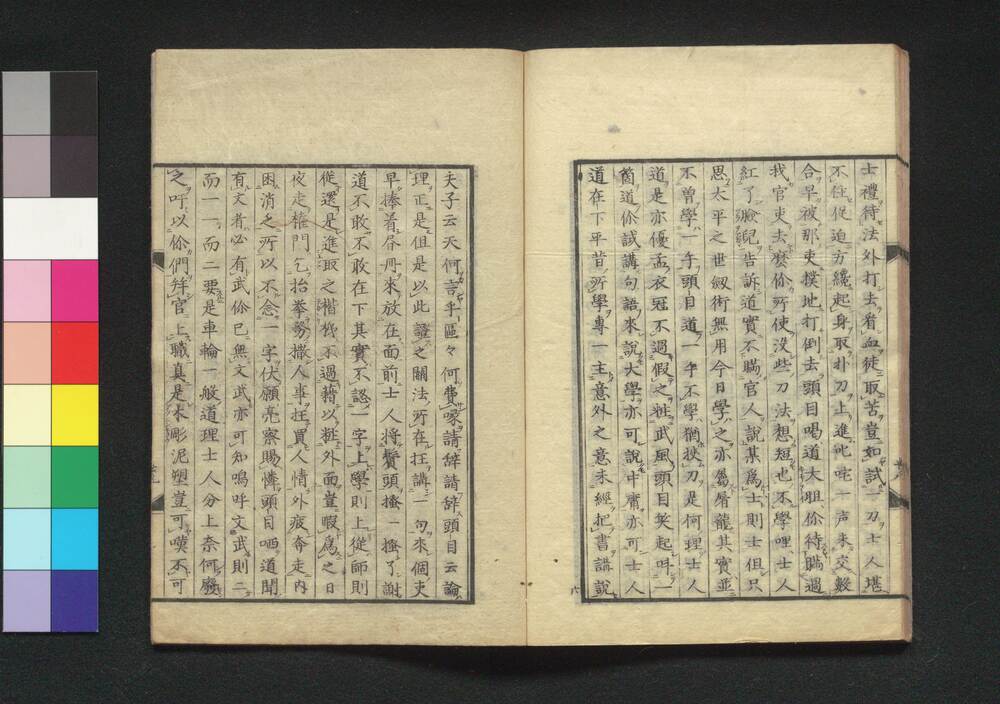 士禮待法外打去看血徒取苦豈如試一刀士人堪
不住促迫方纔起身取朴刀上進叱咤一声未交數
合早被那吏撲地打倒去頭目喝道大胆你待瞞過
我官吏去麼你所使没些刀法想短也不學哩士人
紅了臉兒告訴道實不瞞官人說某為士則士但只
思太平之世劒術無用今日學之亦屬屠龍其實並
不曾學一手頭目道一手不學猶挾刀是何理士人
道是亦優孟衣冠不過假之粧武風頭目笑起呵一
箇道你試講句語來說大學亦可說中庸亦可士人
道在下平昔所學專一主意外之意未經把書講說
夫子云天何言乎區々何費喙請辞請辞頭目云論
理正是但是以此證之關法所在抂講一句來個吏
早捧着 來放在面前士人將鬢頭搔一搔了謝
道不敢不敢在下其實不認一字上學則上從師則
從還是進取之楷 不過藉以粧外面豈暇為之日
夜走權門乞抬拳努撒人事抂買人情外疲奔走内
困消之所以不念一字伏願亮察賜憐頭目哂道聞
有文者必有武你已無文武亦可知嗚呼文武則二
而一一而二要是車輪一般道理士人分上奈何廢
之吁以你們 官上職真是木彫泥塑豈可嘆不可